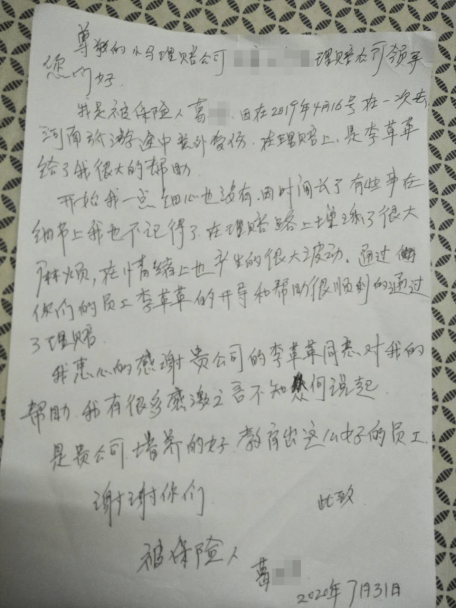 尊敬的小马理赔公司 理赔公司领导
您们好
我是被保险人葛 因在2019年4月16号在一次去
河南旅游途中意外受伤.在理赔上,是李草草
给了我很大的帮助
开始我一点细心也没有.因时间长了有些事在
细节上我也不记得了.在理赔路上增添了很大
麻烦,在情绪上也产生的很大波动.通过
你们的员工李草草的开导和帮助很顺利的通过
了理赔
我衷心的感谢贵公司的李草草同志.对我的
帮助.我有很多感激之言不知何说起
是贵公司培养的好.教育出这么好的员工
谢谢你们 此致
被保险人
葛
2020年7月31日